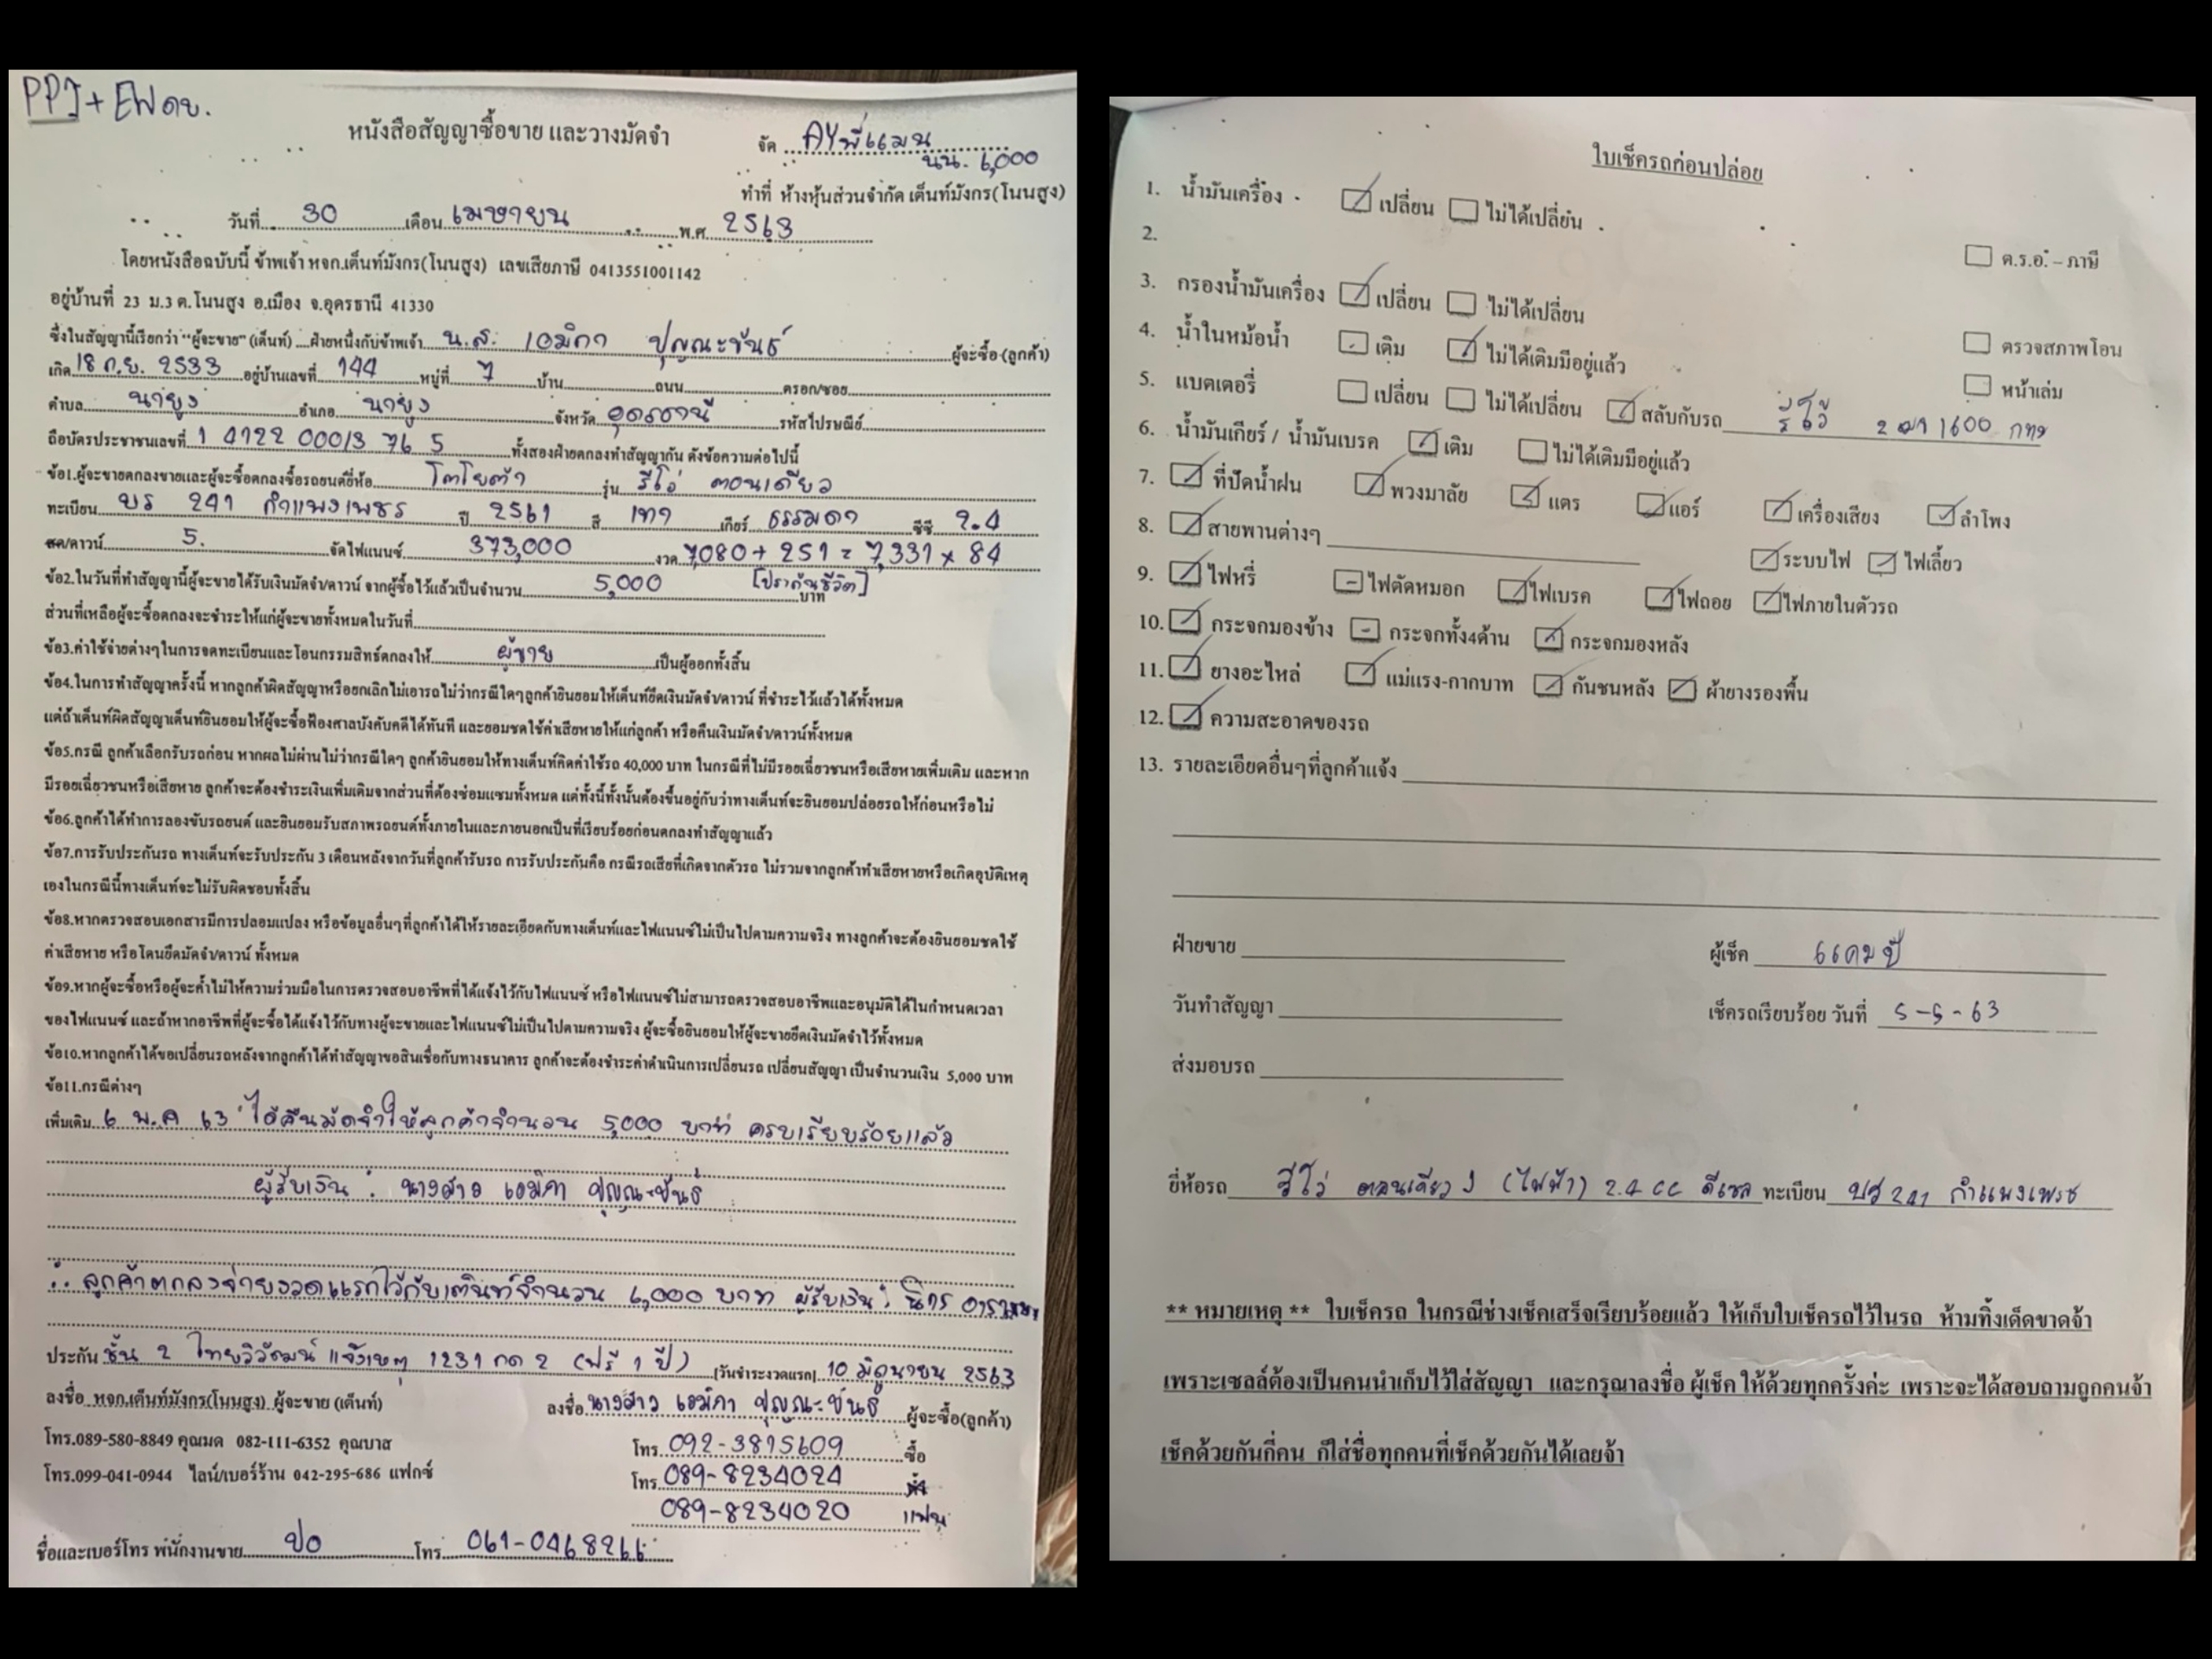 PPI + EW ดย.
หนังสือสัญญาซื้อขาย และวางมัดจำ
จัด AYพี่แมน
นน. 6,000
ทำที่ ห้างหุ้นส่วนจำกัด เต็นท์มังกร(โนนสูง)
วันที่ 30 เดือน เมษายน พ.ศ. 2563
โดยหนังสือฉบับนี้ ข้าพเจ้า หจก.เต็นท์มังกร(โนนสูง) เลขเสียภาษี 0413551001142
อยู่บ้านที่ 23 ม.3 ต.โนนสูง อ.เมือง จ.อุดรธานี 41330
ซึ่งในสัญญานี้เรียกว่า "ผู้จะขาย" (เต็นท์) ....ฝ่ายหนึ่งกับข้าพเจ้า น.ส. เอมิกา ปุญณะขันธ์ ผู้จะซื้อ (ลูกค้า)
เกิด 18 ก.ย. 2533 อยู่บ้านเลขที่ 144 หมู่ที่ 7 บ้าน ถนน ตรอก/ซอย
ตำบล นายูง อำเภอ นายูง จังหวัด อุดรธานี รหัสไปรษณีย์
ถือบัตรประชาชนเลขที่ 1 4122 00013 76 5 ทั้งสองฝ่ายตกลงทำสัญญากัน ดังข้อความต่อไปนี้
ข้อ1.ผู้จะขายตกลงขายและผู้จะซื้อตกลงซื้อรถยนต์ยี่ห้อ โตโยต้า รุ่น รีโว่ ตอนเดียว
ทะเบียน บร 241 กำแพงเพชร ปี 2561 สี เทา เกียร์ ธรรมดา ซีซี 2.4
สด/ดาวน์ 5. จัดไฟแนนซ์ 373,000 งวด 7,080 + 251 = 7,331 x 84
[ประกันชีวิต]
ข้อ2.ในวันที่ทำสัญญานี้ผู้จะขายได้รับเงินมัดจำ/ดาวน์ จากผู้ซื้อไว้แล้วเป็นจำนวน 5,000 บาท
ส่วนที่เหลือผู้จะซื้อตกลงจะชำระให้แก่ผู้จะขายทั้งหมดในวันที่
ข้อ3.ค่าใช้จ่ายต่างๆในการจดทะเบียนและโอนกรรมสิทธ์ตกลงให้ ผู้ขาย เป็นผู้ออกทั้งสิ้น
ข้อ4.ในการทำสัญญาครั้งนี้ หากลูกค้าผิดสัญญาหรือยกเลิกไม่เอารถไม่ว่ากรณีใดๆลูกค้ายินยอมให้เต็นท์ยึดเงินมัดจำ/ดาวน์ ที่ชำระไว้แล้วได้ทั้งหมด
แต่ถ้าเต็นท์ผิดสัญญาเต็นท์ยินยอมให้ผู้จะซื้อฟ้องศาลบังคับคดีได้ทันที และยอมชดใช้ค่าเสียหายให้แก่ลูกค้า หรือคืนเงินมัดจำ/ดาวน์ทั้งหมด
ข้อ5.กรณี ลูกค้าเลือกรับรถก่อน หากผลไม่ผ่านไม่ว่ากรณีใดๆ ลูกค้ายินยอมให้ทางเต็นท์คิดค่าใช้รถ 40,000 บาท ในกรณีที่ไม่มีรอยเฉี่ยวชนหรือเสียหายเพิ่มเติม และหาก
มีรอยเฉี่ยวชนหรือเสียหาย ลูกค้าจะต้องชำระเงินเพิ่มเติมจากส่วนที่ต้องซ่อมแซมทั้งหมด แต่ทั้งนี้ทั้งนั้นต้องขึ้นอยู่กับว่าทางเต็นท์จะยินยอมปล่อยรถให้ก่อนหรือไม่
ข้อ6.ลูกค้าได้ทำการลองขับรถยนต์ และยินยอมรับสภาพรถยนต์ทั้งภายในและภายนอกเป็นที่เรียบร้อยก่อนตกลงทำสัญญาแล้ว
ข้อ7.การรับประกันรถ ทางเต็นท์จะรับประกัน 3 เดือนหลังจากวันที่ลูกค้ารับรถ การรับประกันคือ กรณีรถเสียที่เกิดจากตัวรถ ไม่รวมจากลูกค้าทำเสียหายหรือเกิดอุบัติเหตุ
เองในกรณีนี้ทางเต็นท์จะไม่รับผิดชอบทั้งสิ้น
ข้อ8.หากตรวจสอบเอกสารมีการปลอมแปลง หรือข้อมูลอื่นๆที่ลูกค้าได้ให้รายละเอียดกับทางเต็นท์และไฟแนนซ์ไม่เป็นไปตามความจริง ทางลูกค้าจะต้องยินยอมชดใช้
ค่าเสียหาย หรือโดนยึดมัดจำ/ดาวน์ ทั้งหมด
ข้อ9.หากผู้จะซื้อหรือผู้จะค้ำไม่ให้ความร่วมมือในการตรวจสอบอาชีพที่ได้แจ้งไว้กับไฟแนนซ์ หรือไฟแนนซ์ไม่สามารถตรวจสอบอาชีพและอนุมัติได้ในกำหนดเวลา
ของไฟแนนซ์ และถ้าหากอาชีพที่ผู้จะซื้อได้แจ้งไว้กับทางผู้จะขายและไฟแนนซ์ไม่เป็นไปตามความจริง ผู้จะซื้อยินยอมให้ผู้จะขายยึดเงินมัดจำไว้ทั้งหมด
ข้อ10.หากลูกค้าได้ขอเปลี่ยนรถหลังจากลูกค้าได้ทำสัญญาขอสินเชื่อกับทางธนาคาร ลูกค้าจะต้องชำระค่าดำเนินการเปลี่ยนรถ เปลี่ยนสัญญา เป็นจำนวนเงิน 5,000 บาท
ข้อ11.กรณีต่างๆ
เพิ่มเติม 6 พ.ค 63 ได้คืนมัดจำให้ลูกค้าจำนวน 5,000 บาท ครบเรียบร้อยแล้ว
ผู้รับเงิน : นางสาว เอมิกา ปุญณะขันธ์
∴ ลูกค้าตกลงจ่ายงวดแรกไว้กับเต็นท์จำนวน 6,000 บาท ผู้รับเงิน :
ประกัน ชั้น 2 ไทยวิวัฒน์ แจ้งเหตุ 1231 กด 2 (ฟรี 1 ปี) [วันชำระงวดแรก] 10 มิถุนายน 2563
ลงชื่อ หจก.เต็นท์มังกร(โนนสูง) ผู้จะขาย (เต็นท์) ลงชื่อ นางสาว เอมิกา ปุญณะขันธ์ ผู้จะซื้อ(ลูกค้า)
โทร.089-580-8849 คุณมด 082-111-6352 คุณบาส โทร. 092-3815609 ซื้อ
โทร.099-041-0944 ไลน์/เบอร์ร้าน 042-295-686 แฟกซ์ โทร. 089-8234024
089-8234020 แฟน
ชื่อและเบอร์โทร พนักงานขาย ปอ โทร. 061-0468266
ใบเช็ครถก่อนปล่อย
1. น้ำมันเครื่อง เปลี่ยน ไม่ได้เปลี่ยน
2. ต.ร.อ. – ภาษี
3. กรองน้ำมันเครื่อง เปลี่ยน ไม่ได้เปลี่ยน
ตรวจสภาพโอน
4. น้ำในหม้อน้ำ เติม ไม่ได้เติมมีอยู่แล้ว
หน้าเล่ม
5. แบตเตอรี่ เปลี่ยน ไม่ได้เปลี่ยน สลับกับรถ รีโว้ 2ฒา 1600 กทม
6. น้ำมันเกียร์ / น้ำมันเบรค เติม ไม่ได้เติมมีอยู่แล้ว
7. ที่ปัดน้ำฝน พวงมาลัย แตร แอร์ เครื่องเสียง ลำโพง
8. สายพานต่างๆ ระบบไฟ ไฟเลี้ยว
9. ไฟหรี่ ไฟตัดหมอก ไฟเบรค ไฟถอย ไฟภายในตัวรถ
10. กระจกมองข้าง กระจกทั้ง4ด้าน กระจกมองหลัง
11. ยางอะไหล่ แม่แรง-กากบาท กันชนหลัง ผ้ายางรองพื้น
12. ความสะอาดของรถ
13. รายละเอียดอื่นๆที่ลูกค้าแจ้ง
ฝ่ายขาย ผู้เช็ค แคมป์
วันทำสัญญา เช็ครถเรียบร้อย วันที่ 5-5-63
ส่งมอบรถ
ยี่ห้อรถ รีโว่ ตอนเดียว J (ไฟฟ้า) 2.4 CC ดีเซล ทะเบียน บร 241 กำแพงเพชร
** หมายเหตุ ** ใบเช็ครถ ในกรณีช่างเช็คเสร็จเรียบร้อยแล้ว ให้เก็บใบเช็ครถไว้ในรถ ห้ามทิ้งเด็ดขาดจ้า
เพราะเซลล์ต้องเป็นคนนำเก็บไว้ใส่สัญญา และกรุณาลงชื่อ ผู้เช็ค ให้ด้วยทุกครั้งค่ะ เพราะจะได้สอบถามถูกคนจ้า
เช็คด้วยกันกี่คน ก็ใส่ชื่อทุกคนที่เช็คด้วยกันได้เลยจ้า